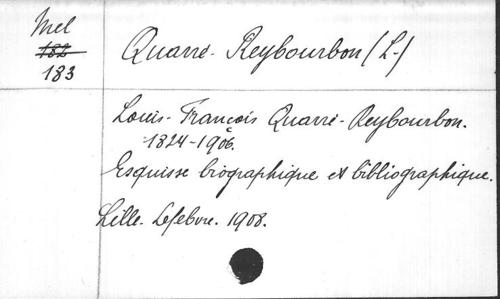 Mel
182
183
Quarré-Reybourbon (L-)
Louis-François Quarré-Reybourbon.
1824-1906.
Esquisse biographique et bibliographique.
Lille. Lefebvre. 1908.